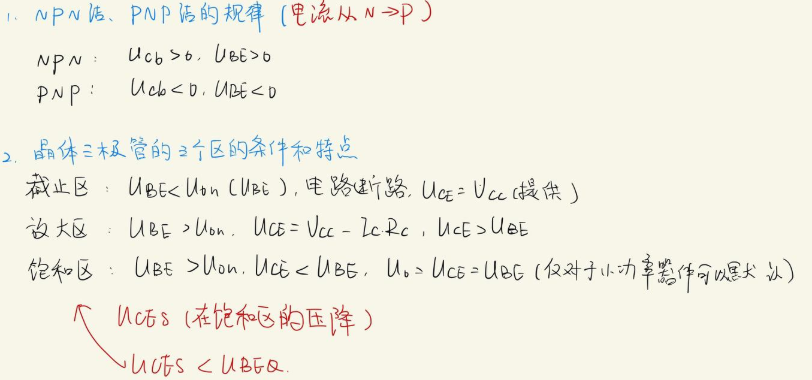 1. NPN结、PNP结的规律 (电流从N→P)
NPN: Ucb>0. UBE>0
PNP: Ucb<0. UBE<0
2. 晶体三极管的3个区的条件和特点
截止区: UBE<Uon(UBE), 电路断路. UCE=VCC(提供)
放大区: UBE>Uon. UCE=VCC-IC·RC, UCE>UBE
饱和区: UBE>Uon. UCE<UBE, Uo=UCE=UBE (仅对于小功率器件可以默认)
UCES (在饱和区的压降)
UCES<UBEQ.